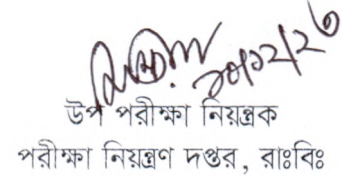 ১০/১২/২৩
উপ পরীক্ষা নিয়ন্ত্রক
পরীক্ষা নিয়ন্ত্রণ দপ্তর, রাঃবিঃ